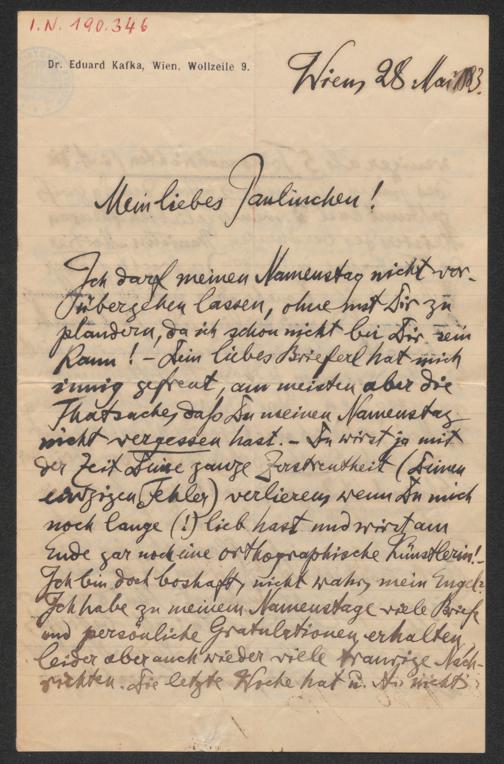 I.N. 190.346
Dr. Eduard Kafka, Wien, Wollzeile 9.
Wien, 28 Mai
Mein liebes Paulinchen!
Ich darf meinen Namenstag nicht vor-
übergehen lassen, ohne mit Dir zu
plaudern, da ich schon nicht bei Dir sein
kann! – Dein liebes Brieferl hat mich
innig gefreut, am meisten aber die
Thatsache, daß Du meinen Namenstag
nicht vergessen hast. – Du wirst ja mit
der Zeit Deine ganze Zerstreutheit (Deinen
einzigen Fehler) verlieren, wenn Du mich
noch lange (!) lieb hast und wirst am
Ende gar noch eine orthographische Künstlerin! –
Ich bin doch boshaft, nicht wahr, mein Engel?
Ich habe zu meinem Namenstage viele Briefe
und persönliche Gratulationen erhalten
leider aber auch wieder viele traurige Nach-
richten. Die letzte Woche hat u. nichts